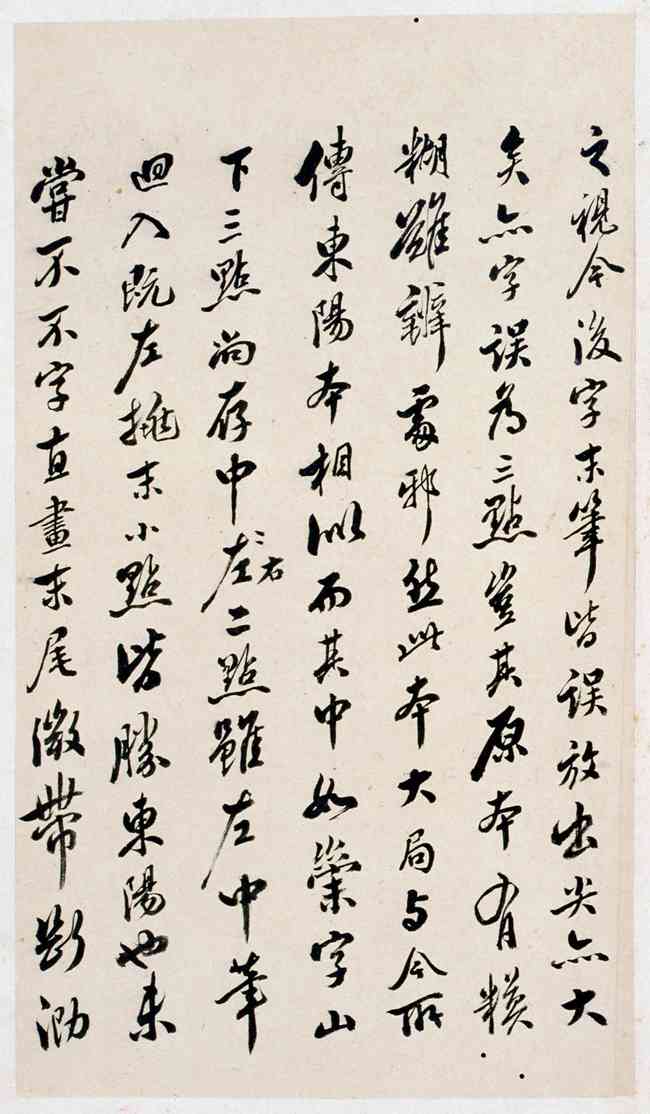 之視今後字末筆皆誤放出尖亦大
矣亦字誤為三點豈其原本有模
糊難辨處邪然此本大局与今所
傳東陽本相似而其中如崇字山
下三點尚存中左右二點雖左中筆
迴入既左挑末小點皆勝東陽也未
嘗不不字直畫末尾微帶斷泐